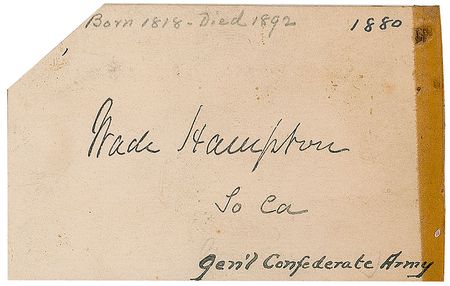 Born 1818 - Died 1892 1880
Wade Hampton
So Ca
Gen'l Confederate Army